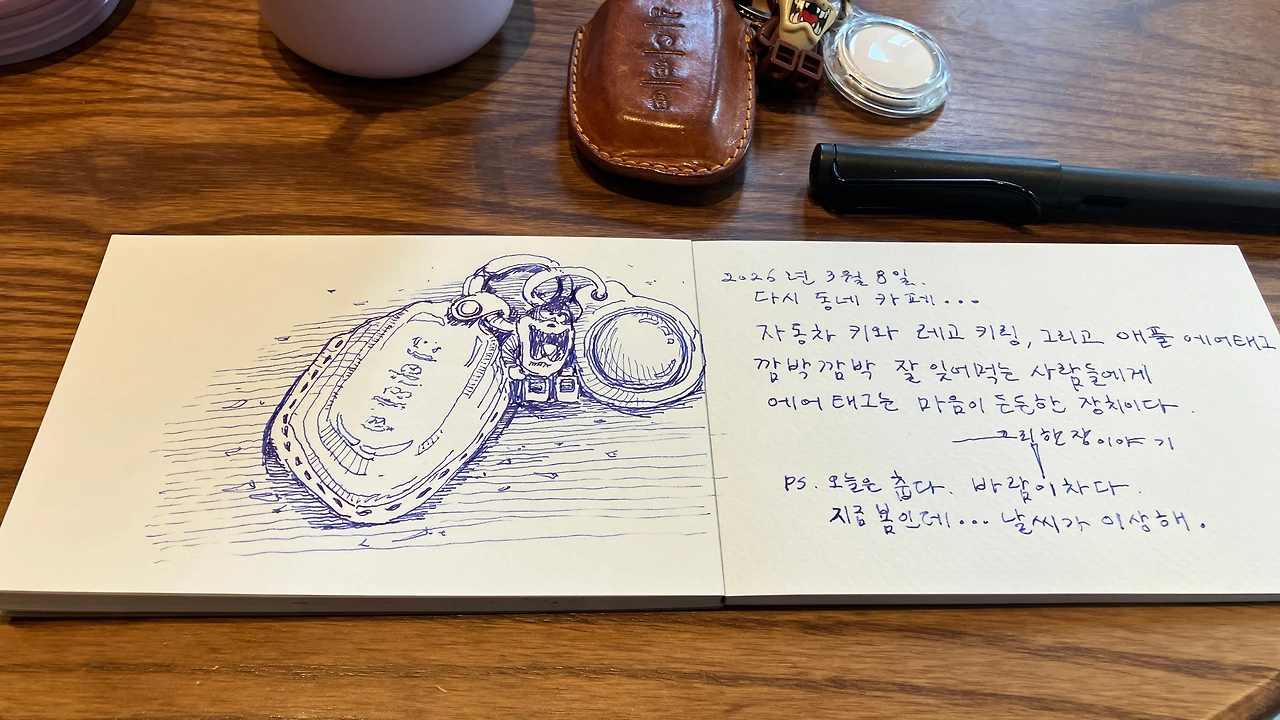 2026년 3월 8일.
다시 동네 카페...
자동차 키와 레고 키링, 그리고 애플 에어태그
깜박깜박 잘 잊어먹는 사람들에게
에어태그는 마음이 든든한 장치이다.
그림한장이야기
PS. 오늘은 춥다. 바람이 차다.
지금 봄인데... 날씨가 이상해.